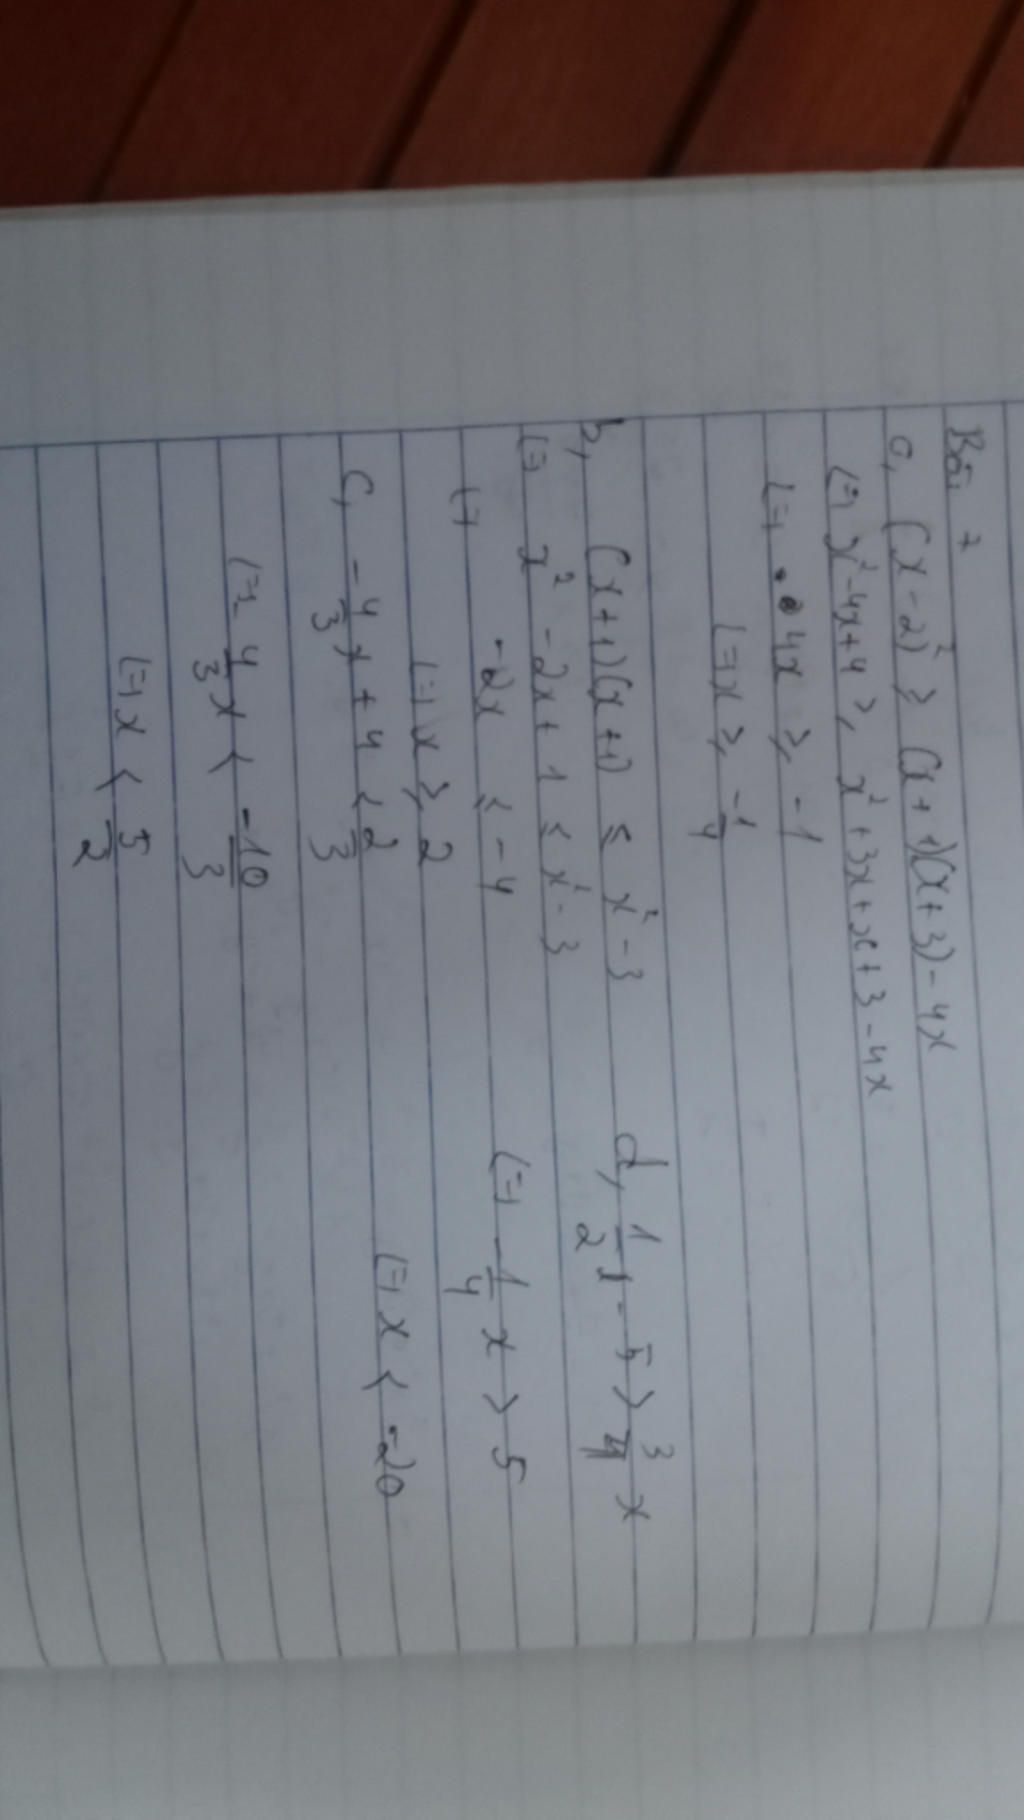 Bài 7
a, (x-2)² ≥ (x+1)(x+3) - 4x
(=) x²-4x+4 ≥ x²+3x+x+3-4x
(=) 4x ≥ -1
(=) x ≥ -1/4
b, (x+1)(x+1) ≤ x²-3
(=) x²-2x+1 ≤ x²-3
(=) -2x ≤ -4
(=) x ≥ 2
c, -4/3 x + 4 < 2/3
(=) -4/3 x < -10/3
(=) x < 5/2
d, 1/2 x - 5 > 3/4 x
(=) -1/4 x > 5
(=) x < -20